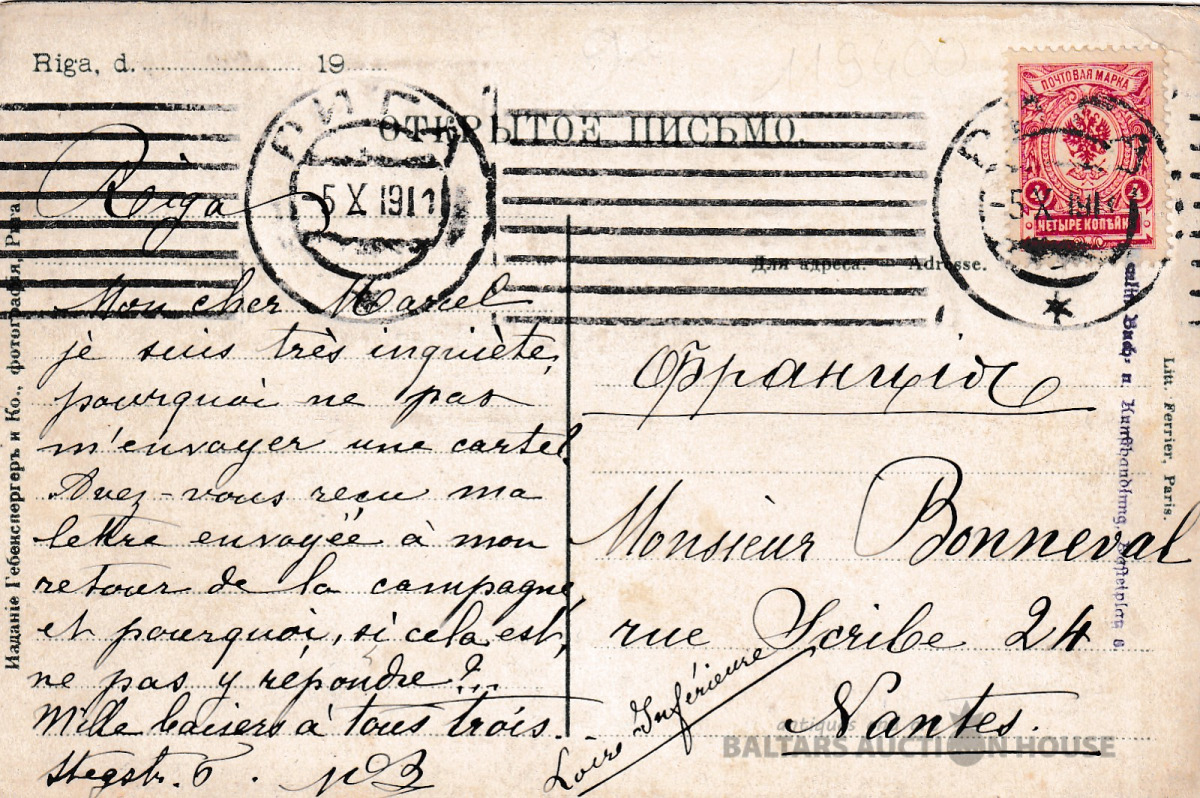 Riga, d. 19
ОТКРЫТОЕ ПИСЬМО.
РИГА
5 X 1911
ПОЧТОВАЯ МАРКА
4 4
ЧЕТЫРЕ КОПѢЙКИ
5 X 1911
Для адреса. — Adresse.
Riga
Mon cher Marcel
je suis très inquiète,
pourquoi ne pas
m'envoyer une carte.
Avez-vous reçu ma
lettre envoyée à mon
retour de la campagne
et pourquoi, si cela est,
ne pas y répondre?..
Mille baisers à tous trois.
Stegstr. 6.
Франція
Monsieur Bonneval
rue Scribe 24
Nantes.
Loire Inférieure
Изданіе Гебенспергеръ и Ко., фотографія, Рига
Buch- u. Kunsthandlung,
Litt. Ferrier, Paris.
BALTARS AUCTION HOUSE